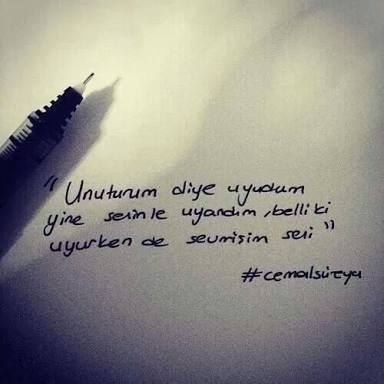 "Unuturum diye uyudum
yine seninle uyandım, belli ki
uyurken de sevmişim seni"
#cemalsüreya